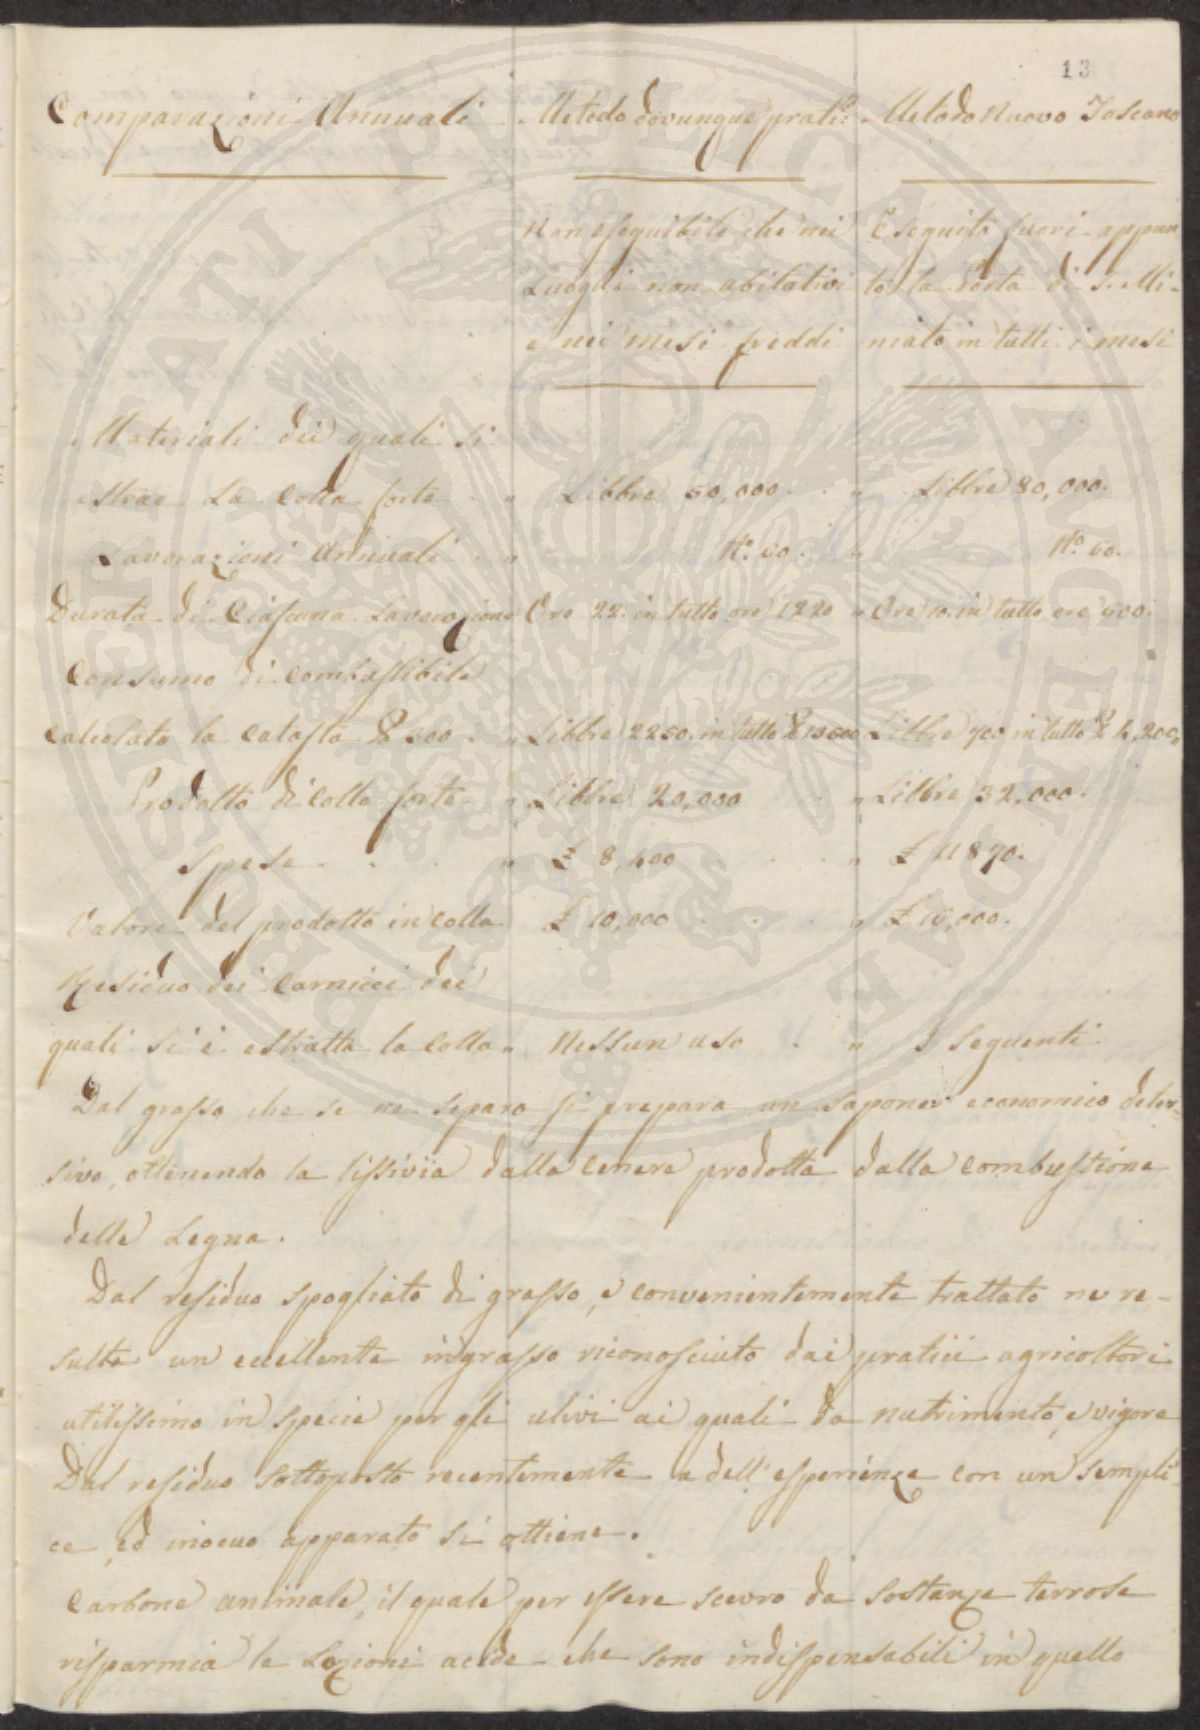 13
Comparazioni Annuali Metodo dovunque prat.º Metodo Nuovo Toscano
Non eseguibile che nei Eseguito fuori appun
Luoghi non abitativi to la Porta di S. Mi-
e nei mesi freddi niato in tutti i mesi
Materiali dei quali si
estrae La Colla forte " Libbre 50,000. " Libbre 80,000.
Lavorazioni Annuali " N.º 60. " N.º 60.
Durata di Ciascuna Lavorazione Ore 22. in tutto ore 1220 " Ore 10. in tutto ore 600.
Consumo di Combustibile
Calcolato la Catasta " Libbre 2250. in tutto Libbre 700 in tutto 4,200,
Prodotto di Colla forte " Libbre 20,000 " Libbre 32,000.
Spese " £ 8,400 " £ 11870.
Valore del prodotto in Colla £ 10,000 " £ 16,000.
Residuo dei Carnicci dei
quali si è estratta la Colla " Nessun uso " I seguenti
Dal grasso che se ne separa si prepara un sapone economico deter-
sivo, ottenendo la lissivia dalla Cenere prodotta dalla Combustione
delle Legna.
Dal residuo spogliato di grasso, e convenientemente trattato ne re-
sulta un eccellente ingrasso riconosciuto dai pratici agricoltori
utilissimo in specie per gli ulivi ai quali da nutrimento, e vigore
Dal residuo sottoposto recentemente a dell'esperienze con un sempli-
ce, ed inocuo apparato si ottiene.
Carbone animale, il quale per essere scevro da sostanze terrose
risparmia le Lozioni acide che sono indispensabili in quello